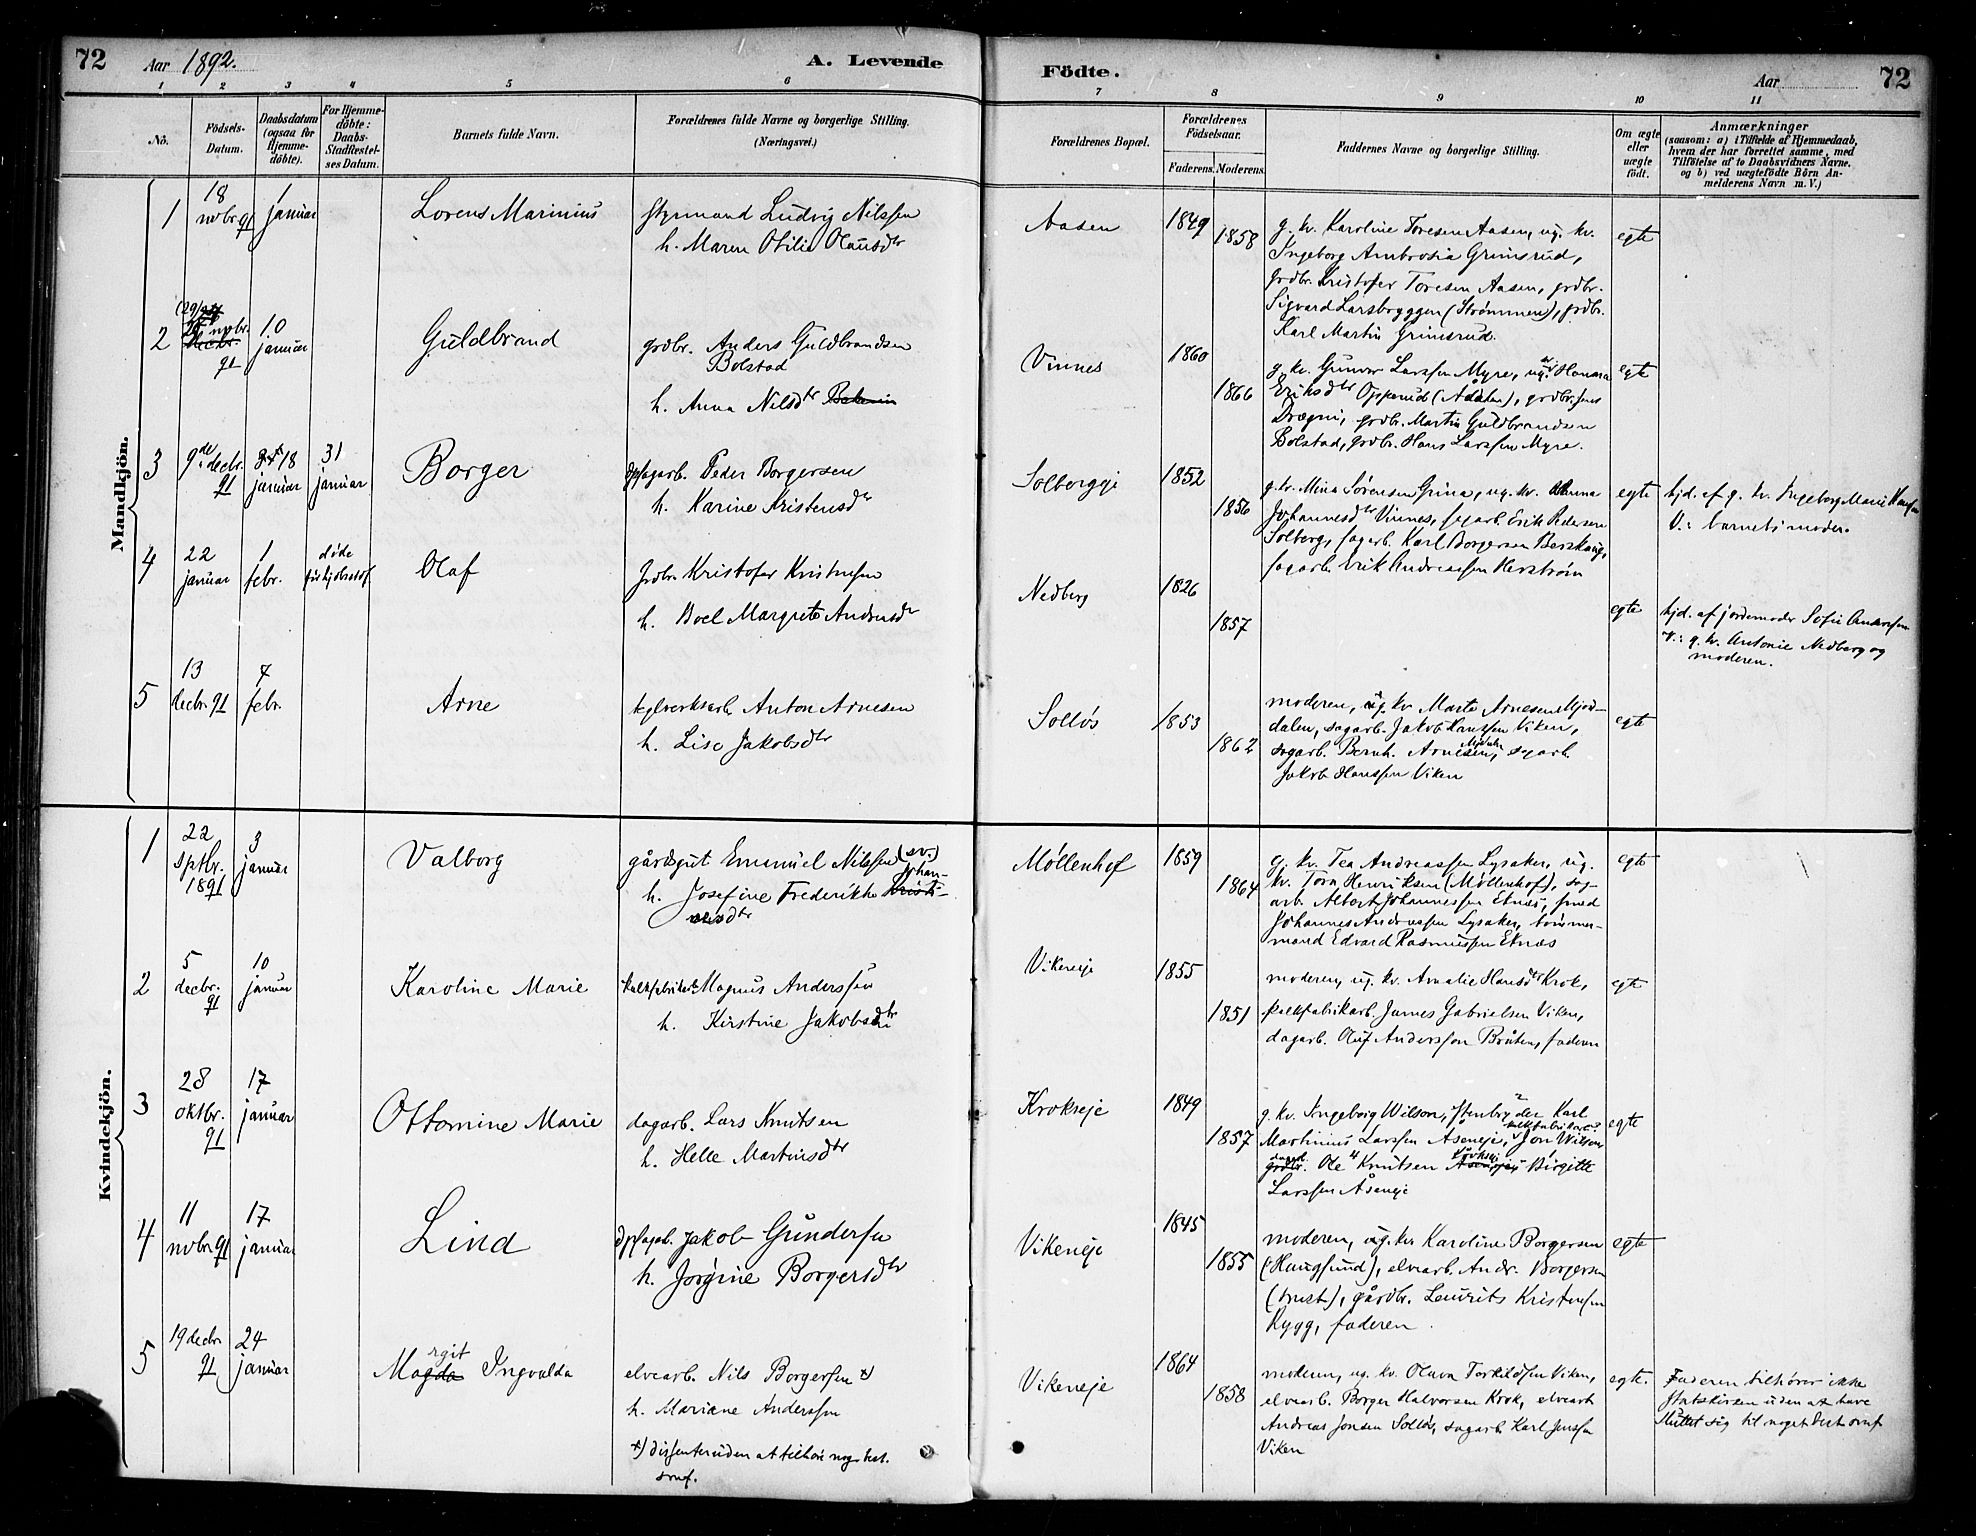 72 Aar 1892. A. Levende Födte. Aar 72
1 2 3 4 5 6 7 8 9 10 11
No.
Födsels-
Datum.
Daabsdatum
(ogsaa for
Hjemme-
döbte).
For Hjemme-
döbte:
Daabs-
Stadfæstel-
ses Datum.
Barnets fulde Navn.
Forældrenes fulde Navne og borgerlige Stilling.
(Næringsvei.)
Forældrenes Bopæl.
Forældrenes
Födselsaar.
Faderens. Moderens.
Faddernes Navne og borgerlige Stilling.
Om ægte
eller
uægte
födt.
Anmærkninger
(saasom: a) i Tilfælde af Hjemmedaab,
hvem der har forrettet samme, med
Tilföielse af to Daabsvidners Navne,
og b) ved uægtefödte Börn An-
melderens Navn m. V.)
Mandkjön.
1
18
novbr. 91
1
januar
Lorens Marinius
Styrmand Ludvig Nilssen
h. Maren Otilie Olausdtr
Aasen
1849
1858
g. kv. Karoline Toresen Aasen, ug. kv.
Ingeborg Ambrosia Grimsrud,
grdbr. Kristofer Toresen Aasen, grdbr.
Sigvard Larsbryggen (Strømmen), grdbr.
Karl Martin Grimsrud.
egte
2
novbr.
91
10
januar
Guldbrand
grdbr. Anders Guldbrandsen
Bolstad
h. Anna Nilsdtr
Vinnes
1860
1866
g. kv. Gunvor Larssen Myre, ug. kv. Hanna
Eriksdtr Opperud (Ådalen), grdbr. Jens
Drægni, grdbr. Martin Guldbrandsen
Bolstad, grdbr. Hans Larssen Myre.
egte
3
9de decbr.
91
18
januar
31
januar
Borger
dpsagarb. Peder Borgersen
h. Karine Kristensdtr
Solbergeje
1852
1856
g. kv. Mina Sørensen Grina, ug. kv. Anna
Johannesdtr Vinnes, sagarb. Erik Pedersen
Solberg, sagarb. Karl Borgersen Berskaug,
sagarb. Erik Andreassen Herstrøm
egte
hjd. af g. kv. Ingeborg Marie Hansen
V.: barnets moder.
4
22
januar
1
febr.
døde
før hjdsstadf.
Olaf
grdbr. Kristofer Kristensen
h. Boel Margrete Andersdtr
Nedberg
1826
1857
egte
hjd. af jordemoder Sofie Andersen
v.: g. kv. Antonie Nedberg og
moderen.
5
13
decbr. 91
7
febr.
Arne
teglverksarb. Anton Arnesen
h. Lise Jakobsdtr
Solløs
1853
1862
moderen, ug. kv. Marte Arnesen Mjøn-
dalen, sagarb. Jakob Hanssen Viken,
sagarb. Bernh. Arnesen, sagarb.
Jakob Hanssen Viken
egte
Kvindekjön.
1
22
Sptbr.
1891
3
januar
Valborg
gårdsgut Emanuel Nilssen (sv.)
h. Josefine Frederikke Johan-
nesdtr
Møllenhof
1859
1864
g. kv. Tea Andreassen Lysaker, ug.
kv. Tora Henriksen (Møllenhof), sag-
arb. Albert Johannessen Etnæs, smed
Johannes Andreassen Lysaker, tømmer-
mand Edvard Rasmussen Etnæs
egte
2
5
decbr.
91
10
januar
Karoline Marie
kalkfabrikarb. Magnus Anderssen
h. Kirstine Jakobsdtr
Vikeneje
1855
1851
moderen, ug. kv. Amalie Hansdtr Krok,
kalkfabrikarb. James Gabrielsen Viken,
dagarb. Oluf Anderssen Bråten, faderen
egte
3
28
oktbr.
91
17
januar
Ottomine Marie
dagarb. Lars Knutsen
h. Helle Martinsdtr
Krokseje
1849
1857
g. kv. Ingeborg Wilson, stenbryder Karl
Martinius Larssen Åseneje, Jon Wilson,
dagarb. Ole Knutsen Krokseje, Birgitte
Larssen Åseneje
egte
4
11
novbr. 91
17
januar
Lind
dpsagarb. Jakob Gundersen
h. Jørgine Borgersdtr
Vikeneje
1845
1855
moderen, ug. kv. Karoline Borgersen
(Haugsund), elvearb. Andr. Borgersen
(hust), gårdbr. Laurits Kristensen
Rygg, faderen.
egte
5
19 decbr.
91
24
januar
Margit Ingvalda
elvearb. Nils Borgersen x)
h. Mariane Anderssen
x) dissenter uden at tilhøre noget best.
samf.
Vikeneje
1864
1858
moderen, ug. kv. Olava Torkildsen Viken,
elvearb. Borger Halvorsen Krok, elvearb.
Andreas Jonsen Solløs, sagarb. Karl Jenssen
Viken
egte.
Faderen tilhører ikke
statskirken uden at have
sluttet sig til noget best. samf.